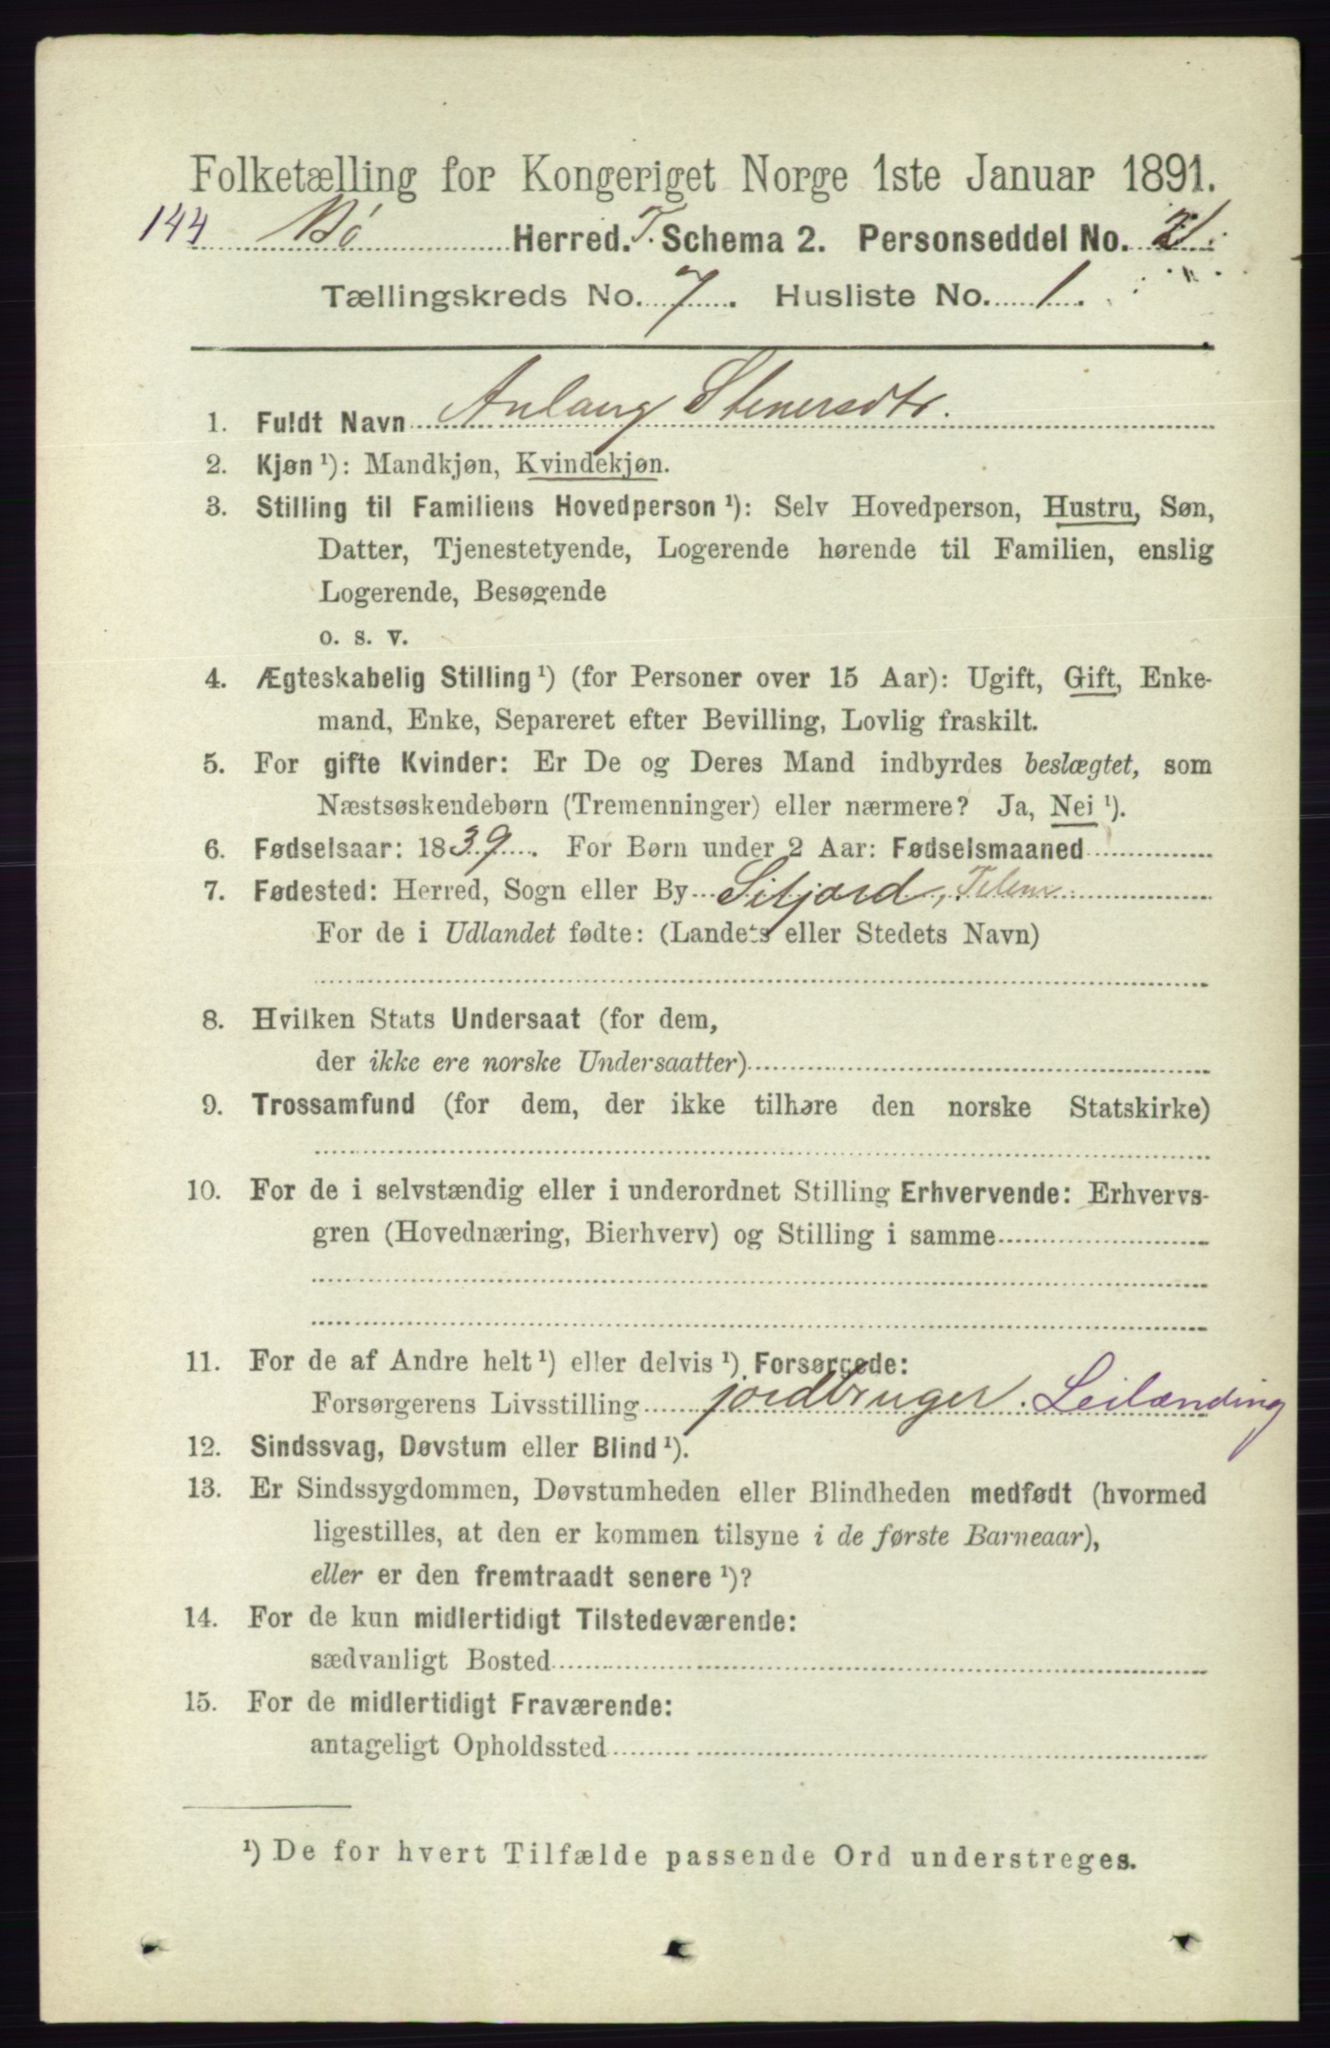 Folketælling for Kongeriget Norge 1ste Januar 1891.
144 Bø Herred. T. Schema 2. Personseddel No.
Tællingskreds No. 7. Husliste No. 1.
1. Fuldt Navn Aslaug Stenersdtr.
2. Kjøn ¹): Mandkjøn, Kvindekjøn.
3. Stilling til Familiens Hovedperson ¹): Selv Hovedperson, Hustru, Søn,
Datter, Tjenestetyende, Logerende hørende til Familien, enslig
Logerende, Besøgende
o. s. v.
4. Ægteskabelig Stilling ¹) (for Personer over 15 Aar): Ugift, Gift, Enke-
mand, Enke, Separeret efter Bevilling, Lovlig fraskilt.
5. For gifte Kvinder: Er De og Deres Mand indbyrdes beslægtet, som
Næstsøskendebørn (Tremenninger) eller nærmere? Ja, Nei ¹).
6. Fødselsaar: 1839. For Børn under 2 Aar: Fødselsmaaned
7. Fødested: Herred, Sogn eller By Sitjord, Telem
For de i Udlandet fødte: (Landets eller Stedets Navn)
8. Hvilken Stats Undersaat (for dem,
der ikke ere norske Undersaatter)
9. Trossamfund (for dem, der ikke tilhøre den norske Statskirke)
10. For de i selvstændig eller i underordnet Stilling Erhvervende: Erhvervs-
gren (Hovednæring, Bierhverv) og Stilling i samme
11. For de af Andre helt ¹) eller delvis ¹) Forsørgede:
Forsørgerens Livsstilling jordbruger. Leilænding
12. Sindssvag, Døvstum eller Blind ¹).
13. Er Sindssygdommen, Døvstumheden eller Blindheden medfødt (hvormed
ligestilles, at den er kommen tilsyne i de første Barneaar),
eller er den fremtraadt senere ¹)?
14. For de kun midlertidigt Tilstedeværende:
sædvanligt Bosted
15. For de midlertidigt Fraværende:
antageligt Opholdssted
¹) De for hvert Tilfælde passende Ord understreges.